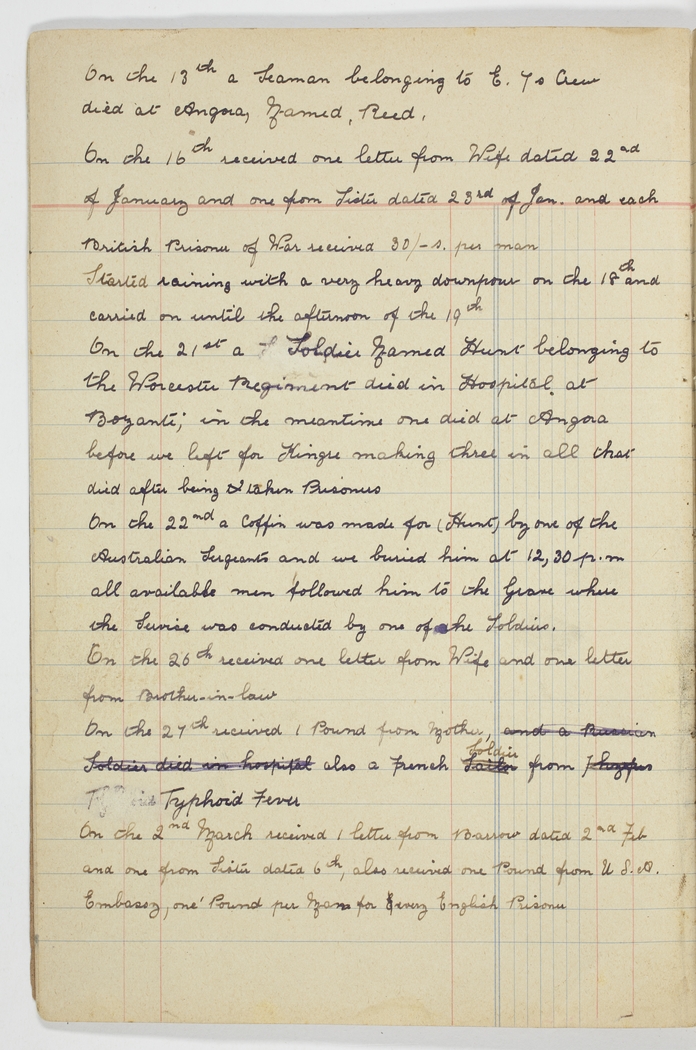 On the 13th a Seaman belonging to E. 7s Crew
died at Angora, Named, Reed.
On the 16th received one letter from Wife dated 22nd
of January and one from Sister dated 23rd of Jan. and each
British Prisoner of War received 30/-s. per man
Started raining with a very heavy downpour on the 18th and
carried on until the afternoon of the 19th
On the 21st a Soldier Named Hunt belonging to
the Worcester Regiment died in Hospital at
Bozanti; in the meantime one died at Angora
before we left for Kingre making three in all that
died after being taken Prisoners
On the 22nd a Coffin was made for (Hunt) by one of the
Australian Sergeants and we buried him at 12,30 p.m
all available men followed him to the Grave where
the Service was conducted by one of the Soldiers.
On the 26th received one letter from Wife and one letter
from Brother-in-law
On the 27th received 1 Pound from Mother, and a Russian
Soldier died in hospital also a French Sailor Soldier from
Typhoid Fever
On the 2nd March received 1 letter from Barrow dated 2nd Feb
and one from Sister dated 6th, also received one Pound from U.S.A.
Embassy, one Pound per Man for Every English Prisoner